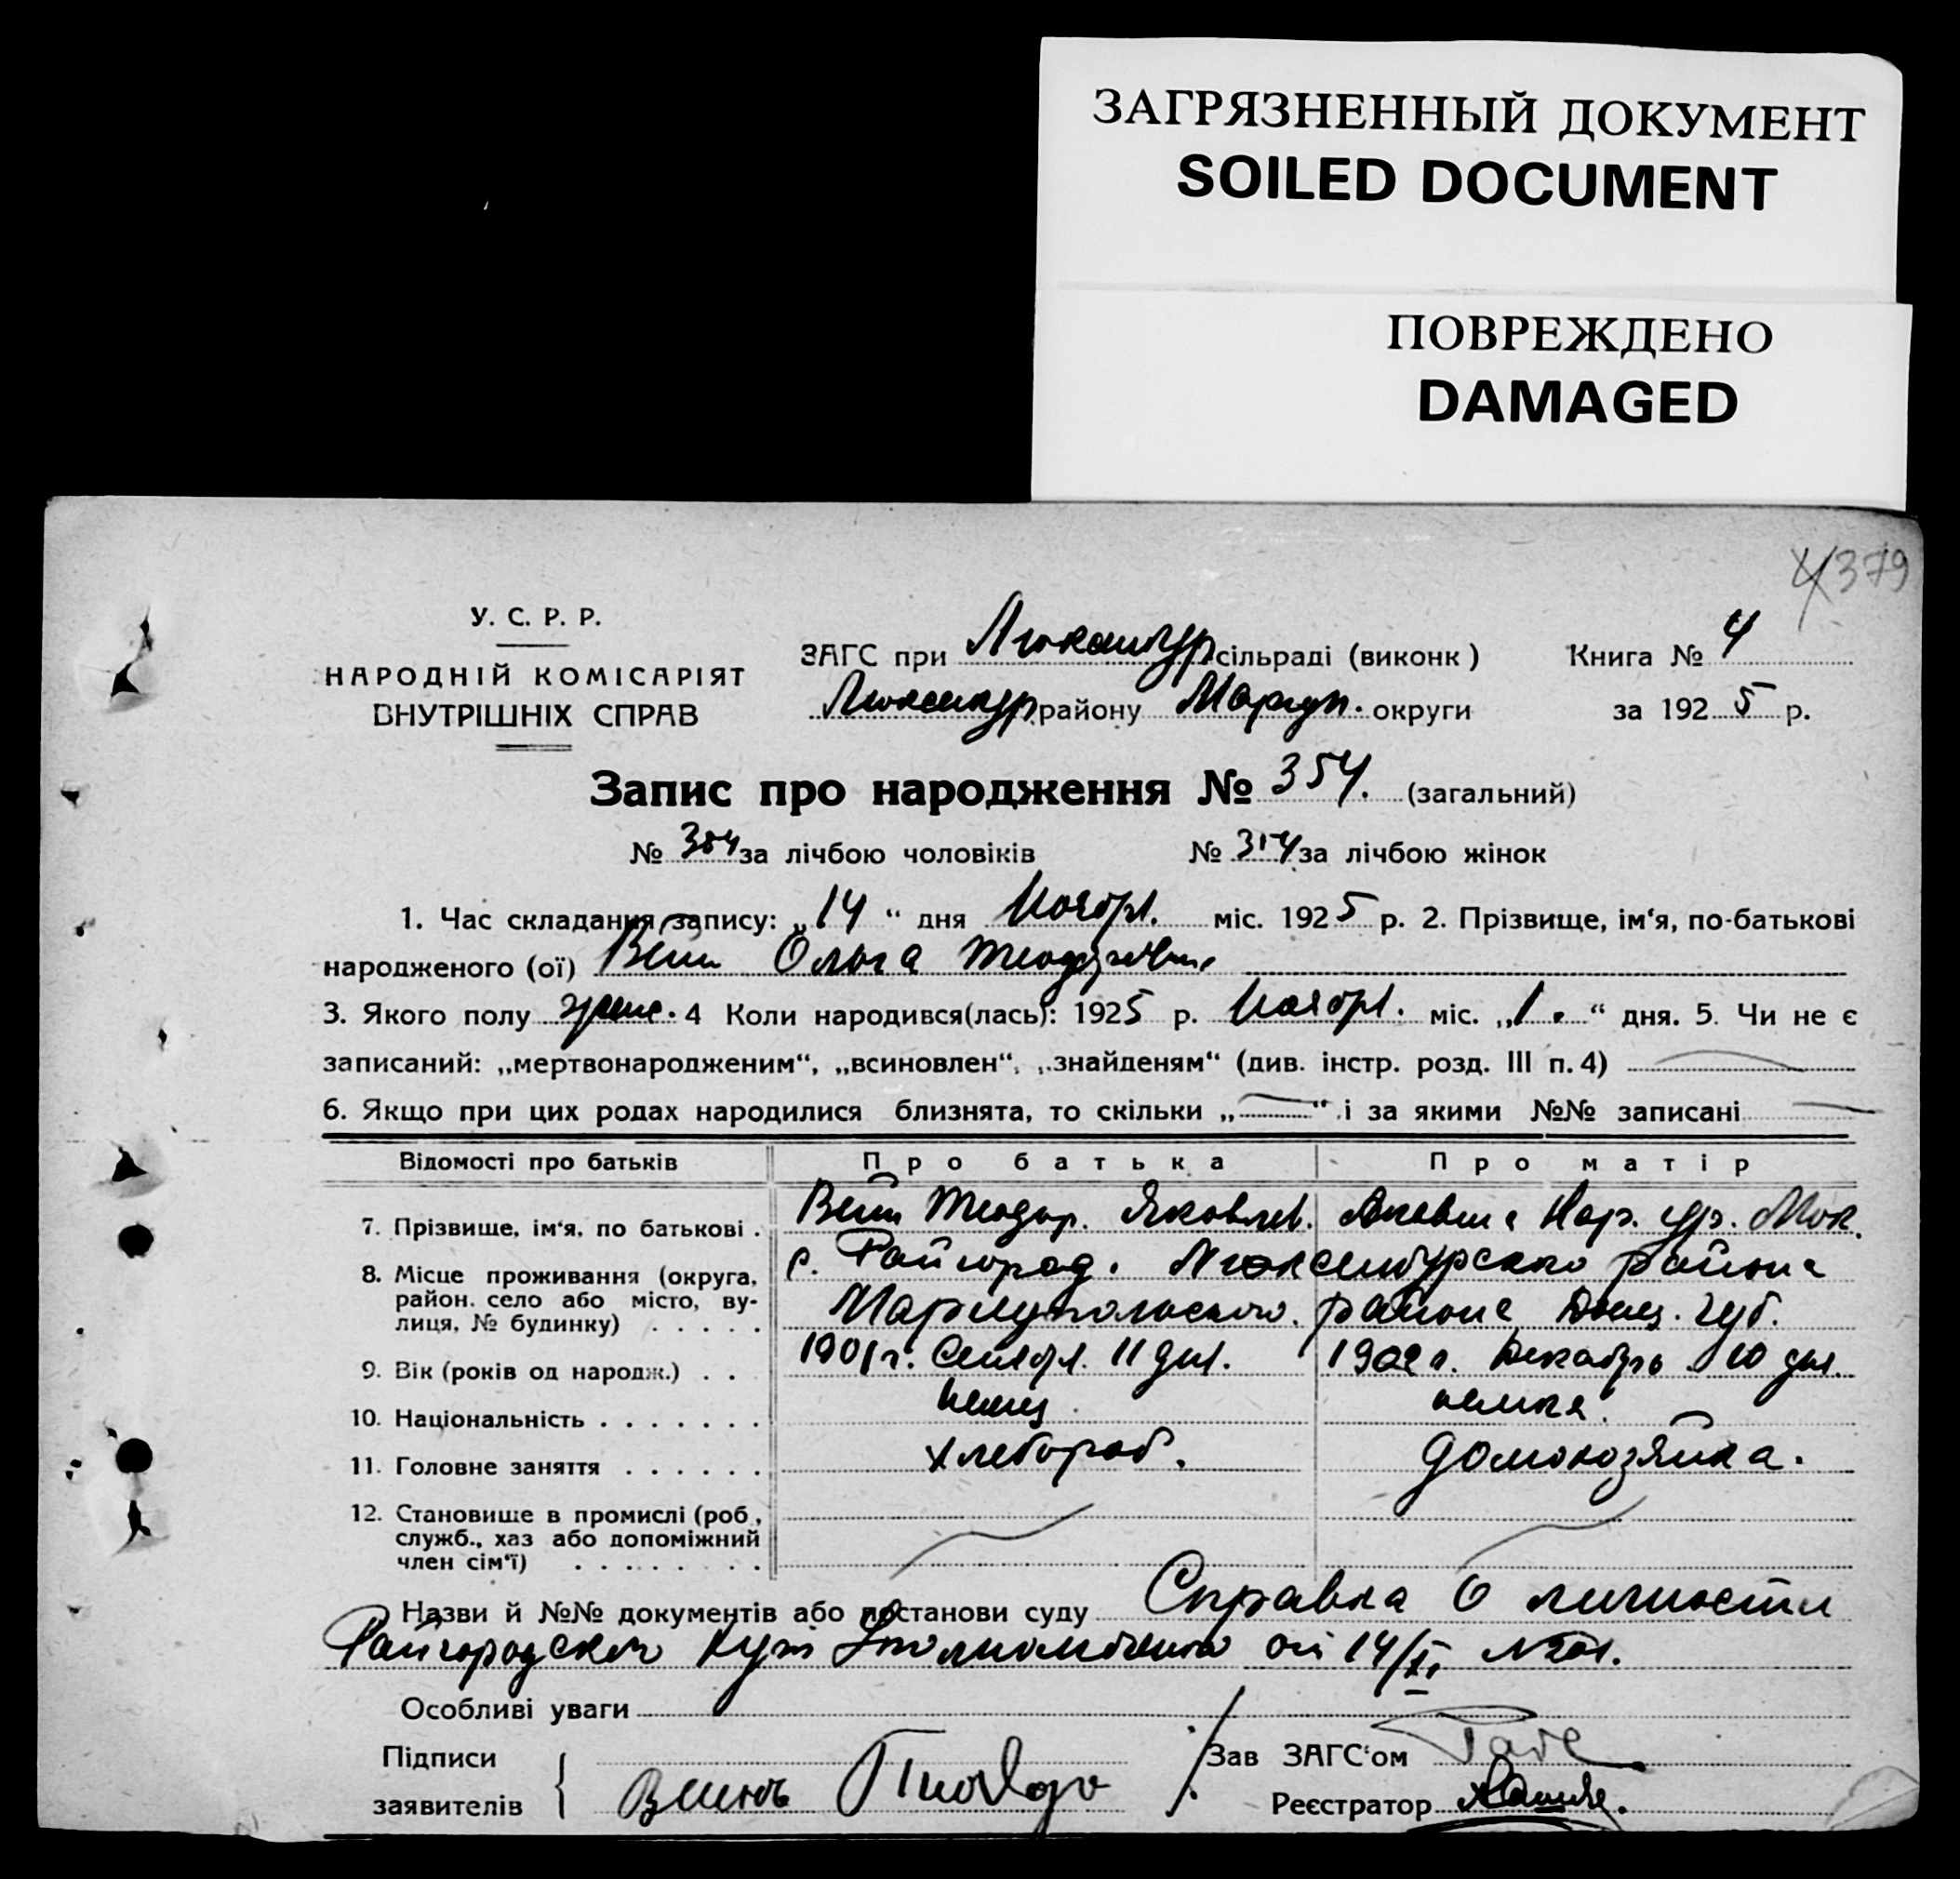 ЗАГРЯЗНЕННЫЙ ДОКУМЕНТ
SOILED DOCUMENT
ПОВРЕЖДЕНО
DAMAGED
379
У. С. Р. Р.
НАРОДНІЙ КОМІСАРІЯТ
ВНУТРІШНІХ СПРАВ
ЗАГС при Люксембур сільраді (виконк) Книга № 4
Люксембур району Мариуп. округи за 1925 р.
Запис про народження № 354. (загальний)
№ 354 за лічбою чоловіків № 354 за лічбою жінок
1. Час складання запису: „14“ дня Ноябрл. міс. 1925 р. 2. Прізвище, ім‘я, по-батькові
народженого (ої) Ольга
3. Якого полу женс. 4 Коли народився(лась): 1925 р. Ноябрл. міс. „1.“ дня. 5. Чи не є
записаний: „мертвонародженим“, „всиновлен“, „знайденям“ (див. інстр. розд. III п. 4)
6. Якщо при цих родах народилися близнята, то скільки „ “ і за якими №№ записані
Відомості про батьків Про батька Про матір
7. Прізвище, ім‘я, по батькові . Теодор. Яковлев.
8. Місце проживання (округа, район. село або місто, вулиця, № будинку) . . . . . с. Райгород. Люксембурского района
Мариупольского. района Донец. губ.
9. Вік (років од народж.) . . 1901 г. Сентябрл. 11 дня. 1902 г. Декабрь 10 дня.
10. Національність . . . . . . . немец. немка.
11. Головне заняття . . . . . . хлебороб. домохозяйка.
12. Становище в промислі (роб, служб., хаз або допоміжний член сім‘ї) . . . . . . . .
Назви й №№ документів або постанови суду Справка о личности
Райгородского от 14/XI
Особливі уваги
Підписи заявителів
Зав ЗАГС‘ом
Реєстратор